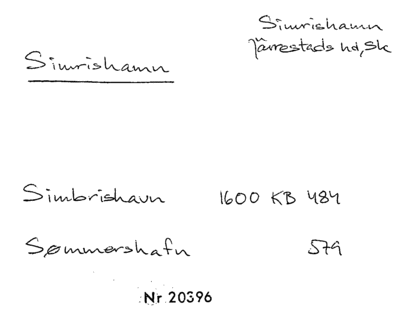 Simrishamn
Järrestads hd, Sk
Simrishamn
Simbrishavn 1600 KB 484
Sømmershafn 579
Nr 20396